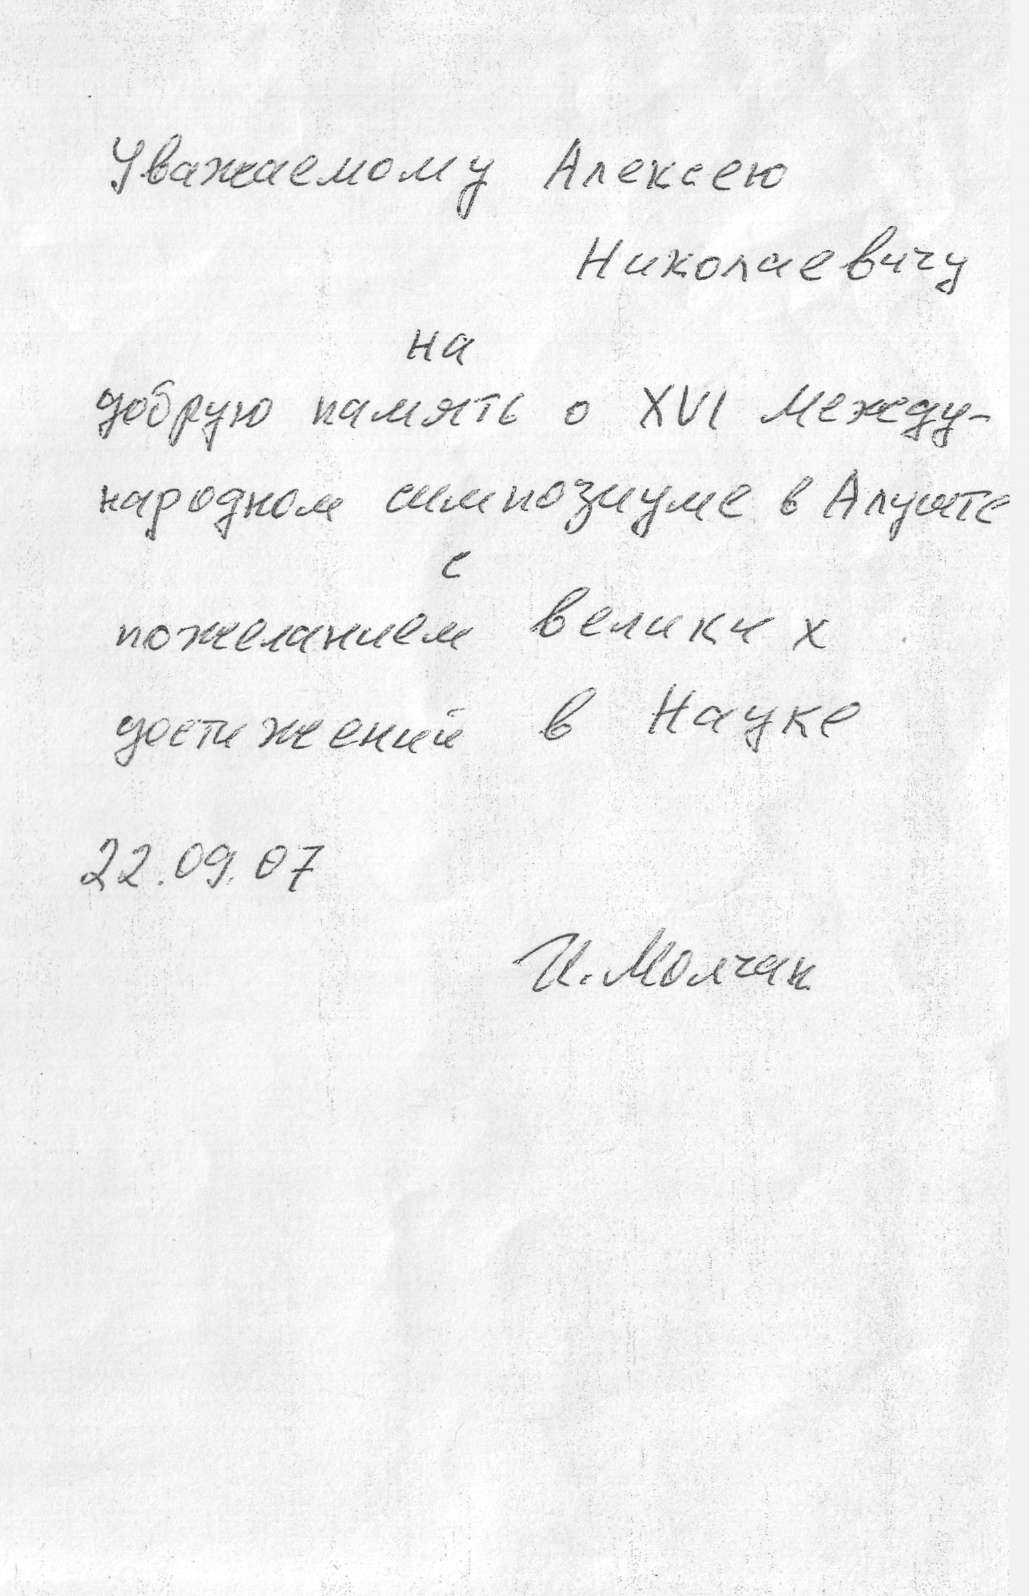 Уважаемому Алексею
Николаевичу
на
добрую память о XVI Между-
народном симпозиуме в Алуште
с
пожеланием великих
достижений в Науке
22.09.07
И. Молчан